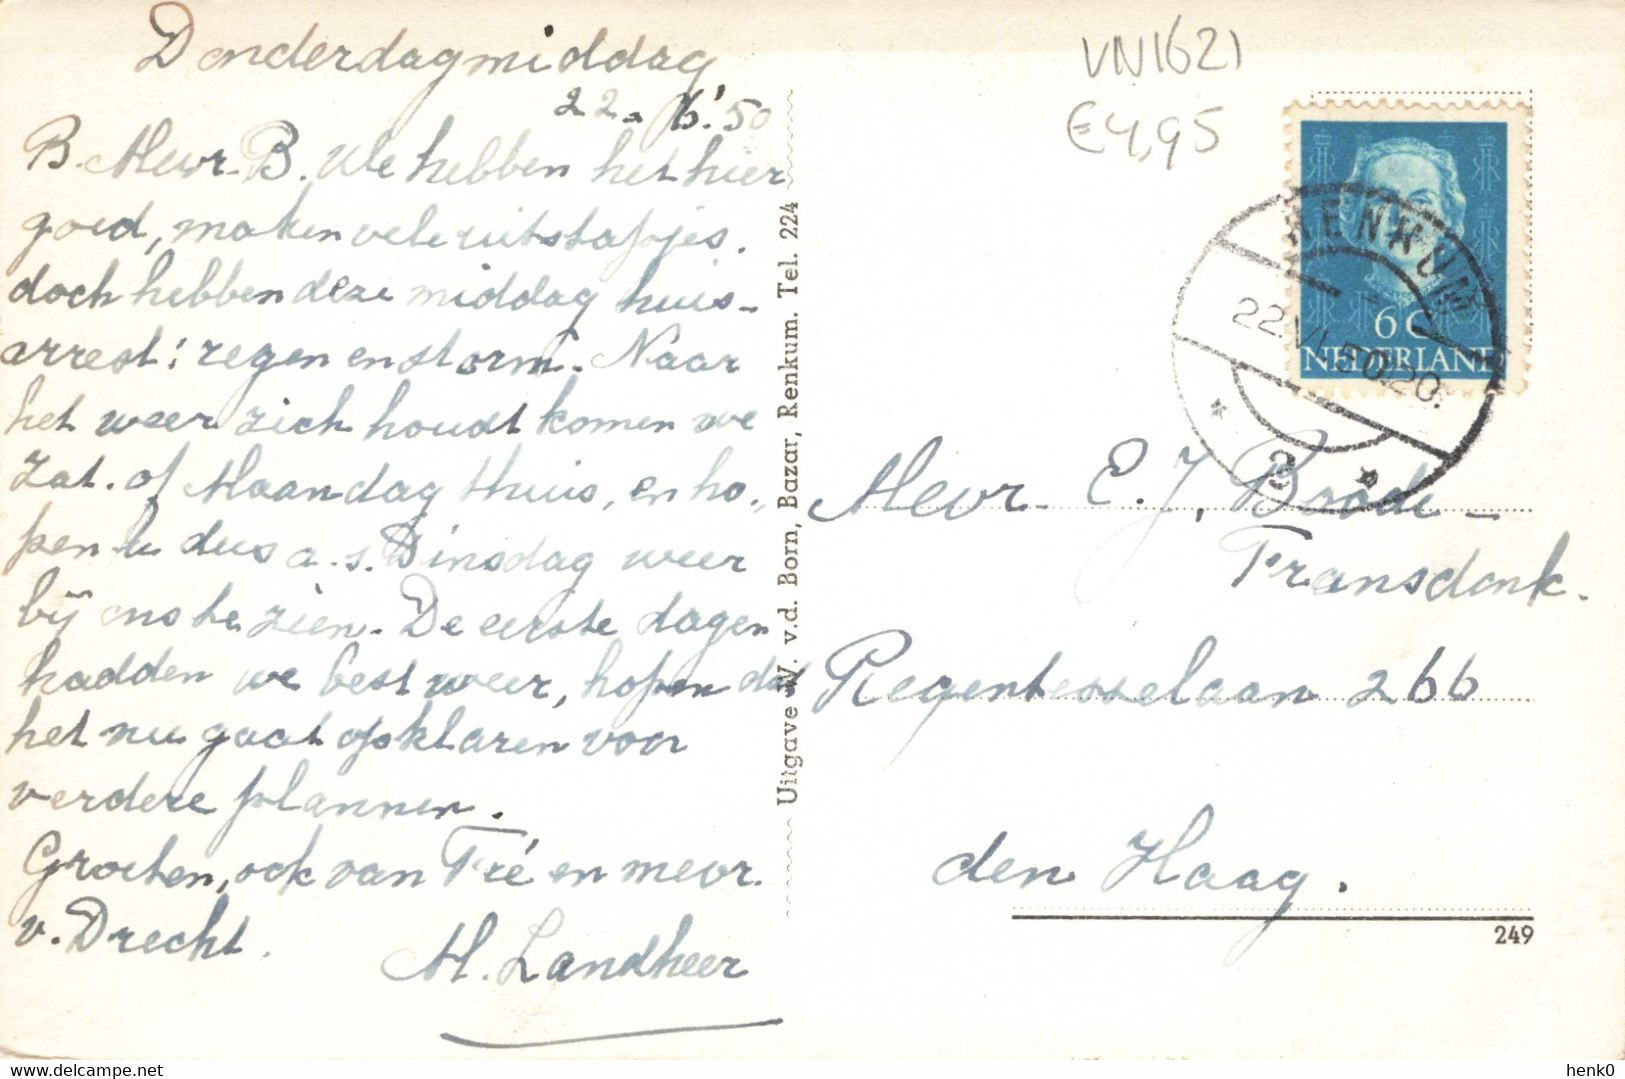 Donderdagmiddag
22-6.'50
B. Mevr. B. We hebben het hier
goed, maken vele uitstapjes.
doch hebben deze middag huis-
arrest: regen en storm. Naar
het weer zich houdt komen we
Zat. of Maandag thuis, en ho-
pen u dus a.s. Dinsdag weer
bij ons te zien. De eerste dagen
hadden we best weer, hopen dat
het nu gaat opklaren voor
verdere plannen.
Groeten, ook van Fré en mevr.
v. Drecht.
M. Landheer
Uitgave W. v.d. Born, Bazar, Renkum. Tel. 224
VN1621
€4,95
6 C
NEDERLAND
RENKUM
22.VI.50.20.
3
Mevr. E. J. Boode-
Fransdonk.
Regentesselaan 266
den Haag.
249
henk0